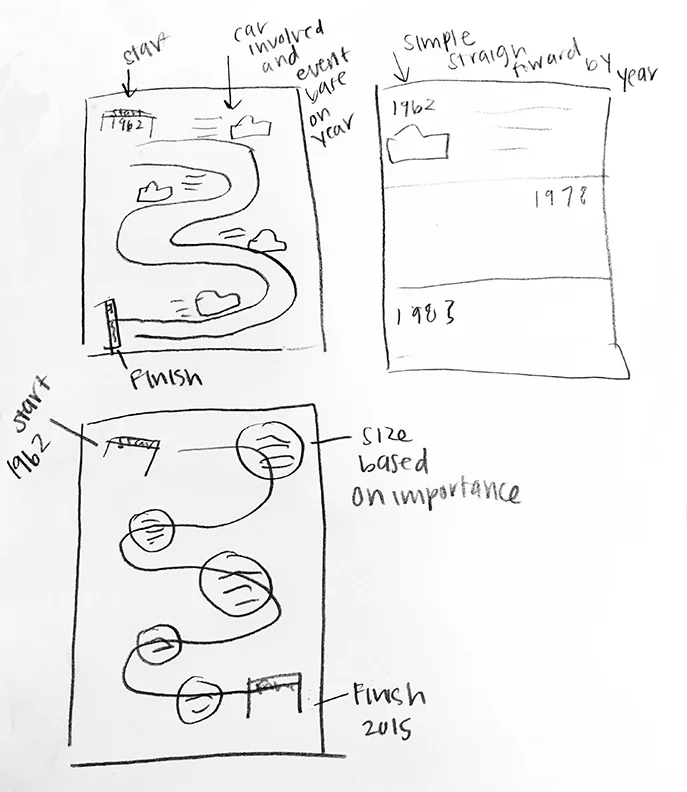 start
car
involved
and
event
base
on
year
start
1962
Finish
simple
straigh
forward by
year
1962
1978
1983
start
1962
start
size
based
on importance
Finish
2015